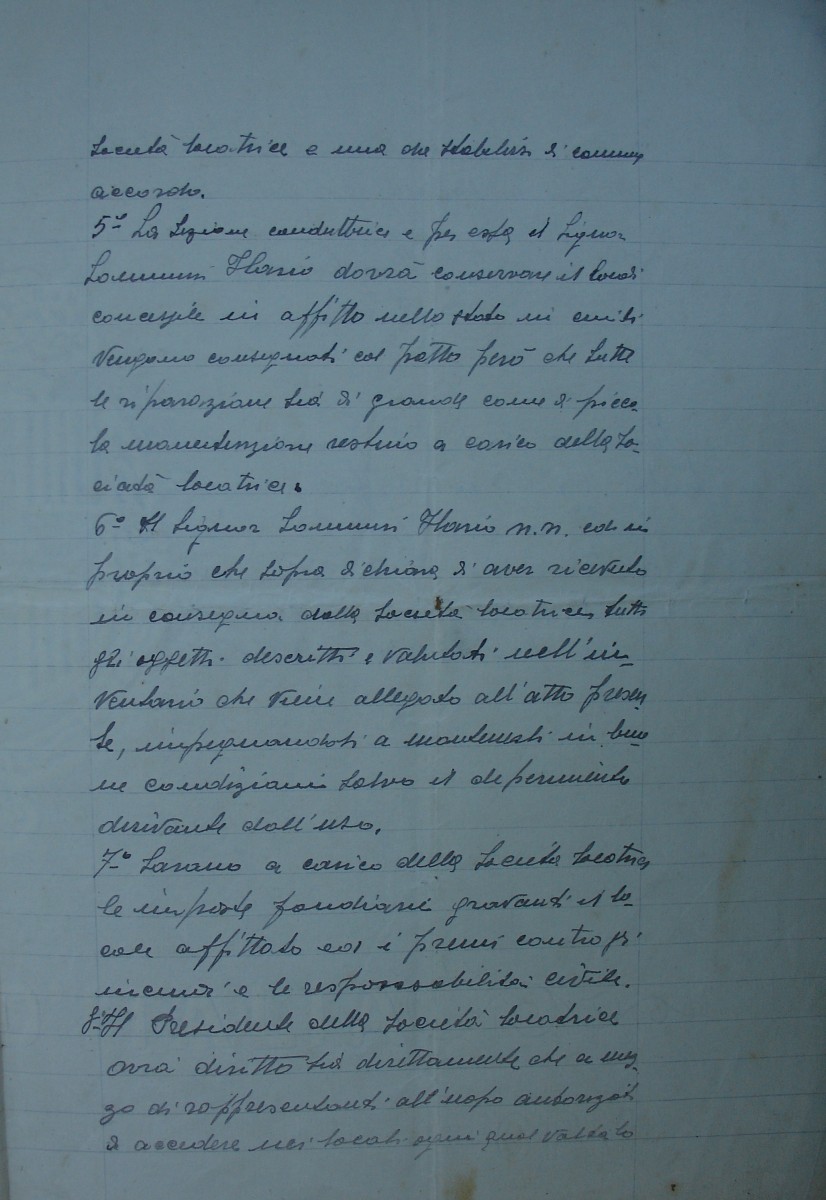 Società locatrice e una da stabilirsi di comune
accordo.
5° La Sezione conduttrice e per essa il Signor
Ilario dovrà conservare i locali
in affitto nello stato in cui li
vengono consegnati col patto però che tutte
le riparazione sia di grande come di picco-
la manutenzione restino a carico della So-
cietà locatrice.
6° Il Signor Ilario n.n. ed in
proprio che sopra dichiara di aver ricevuto
in consegna dalla Società locatrice tutti
gli oggetti descritti e valutati nell'in-
ventario che viene allegato all'atto presen-
te, impegnandosi a mantenerli in buo-
ne condizioni salvo il deperimento
derivante dall'uso.
7° Sarano a carico della Società locatrice
le imposte fondiarie gravanti il lo-
cale affittato ed i premi contro gli
incendi e le responsabilità civile.
8° Il Presidente della Società locatrice
avrà diritto sia direttamente che a mez-
zo di rappresentanti all'uopo autorizzati
di accedere nei locali ogni qual volta lo